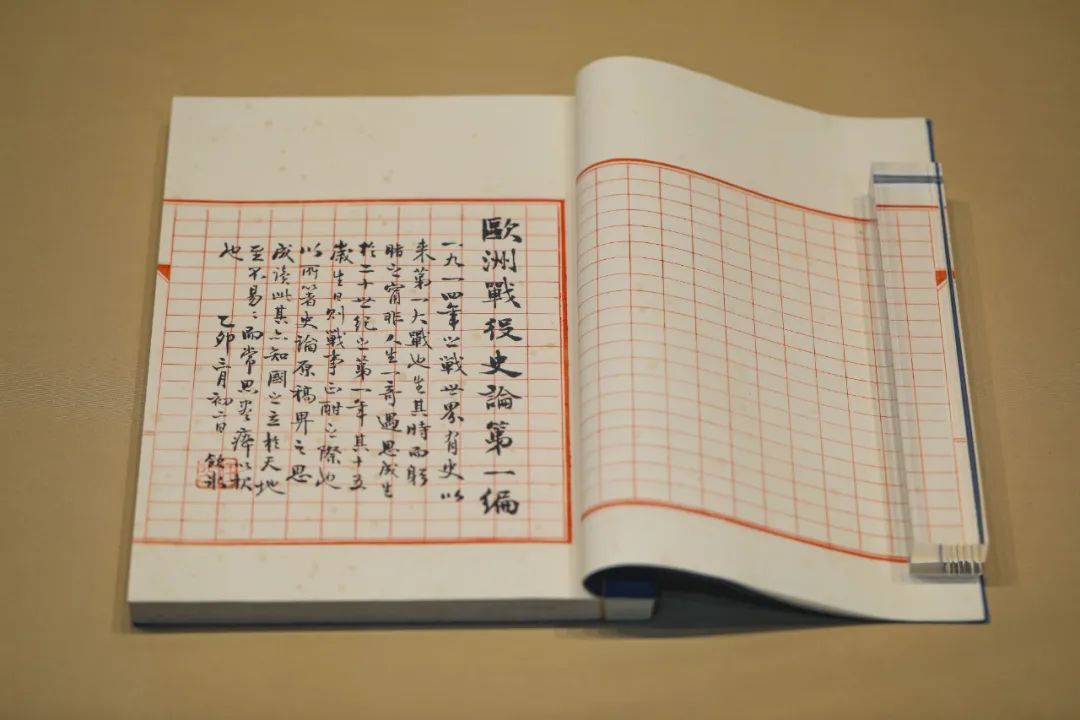 歐洲戰役史論第一編
一九一四年之戰世界有史以
来第一大戰也生其時而躬
睹之寗非人生一奇遇思成生
於二十世紀之第一年其十五
歲生日則戰事正酣之際也
以所著史論原稿畀之思
成讀此其亦知國之立於天地
至不易々而常思盡瘁以扶
也
乙卯三月初二日 飲冰